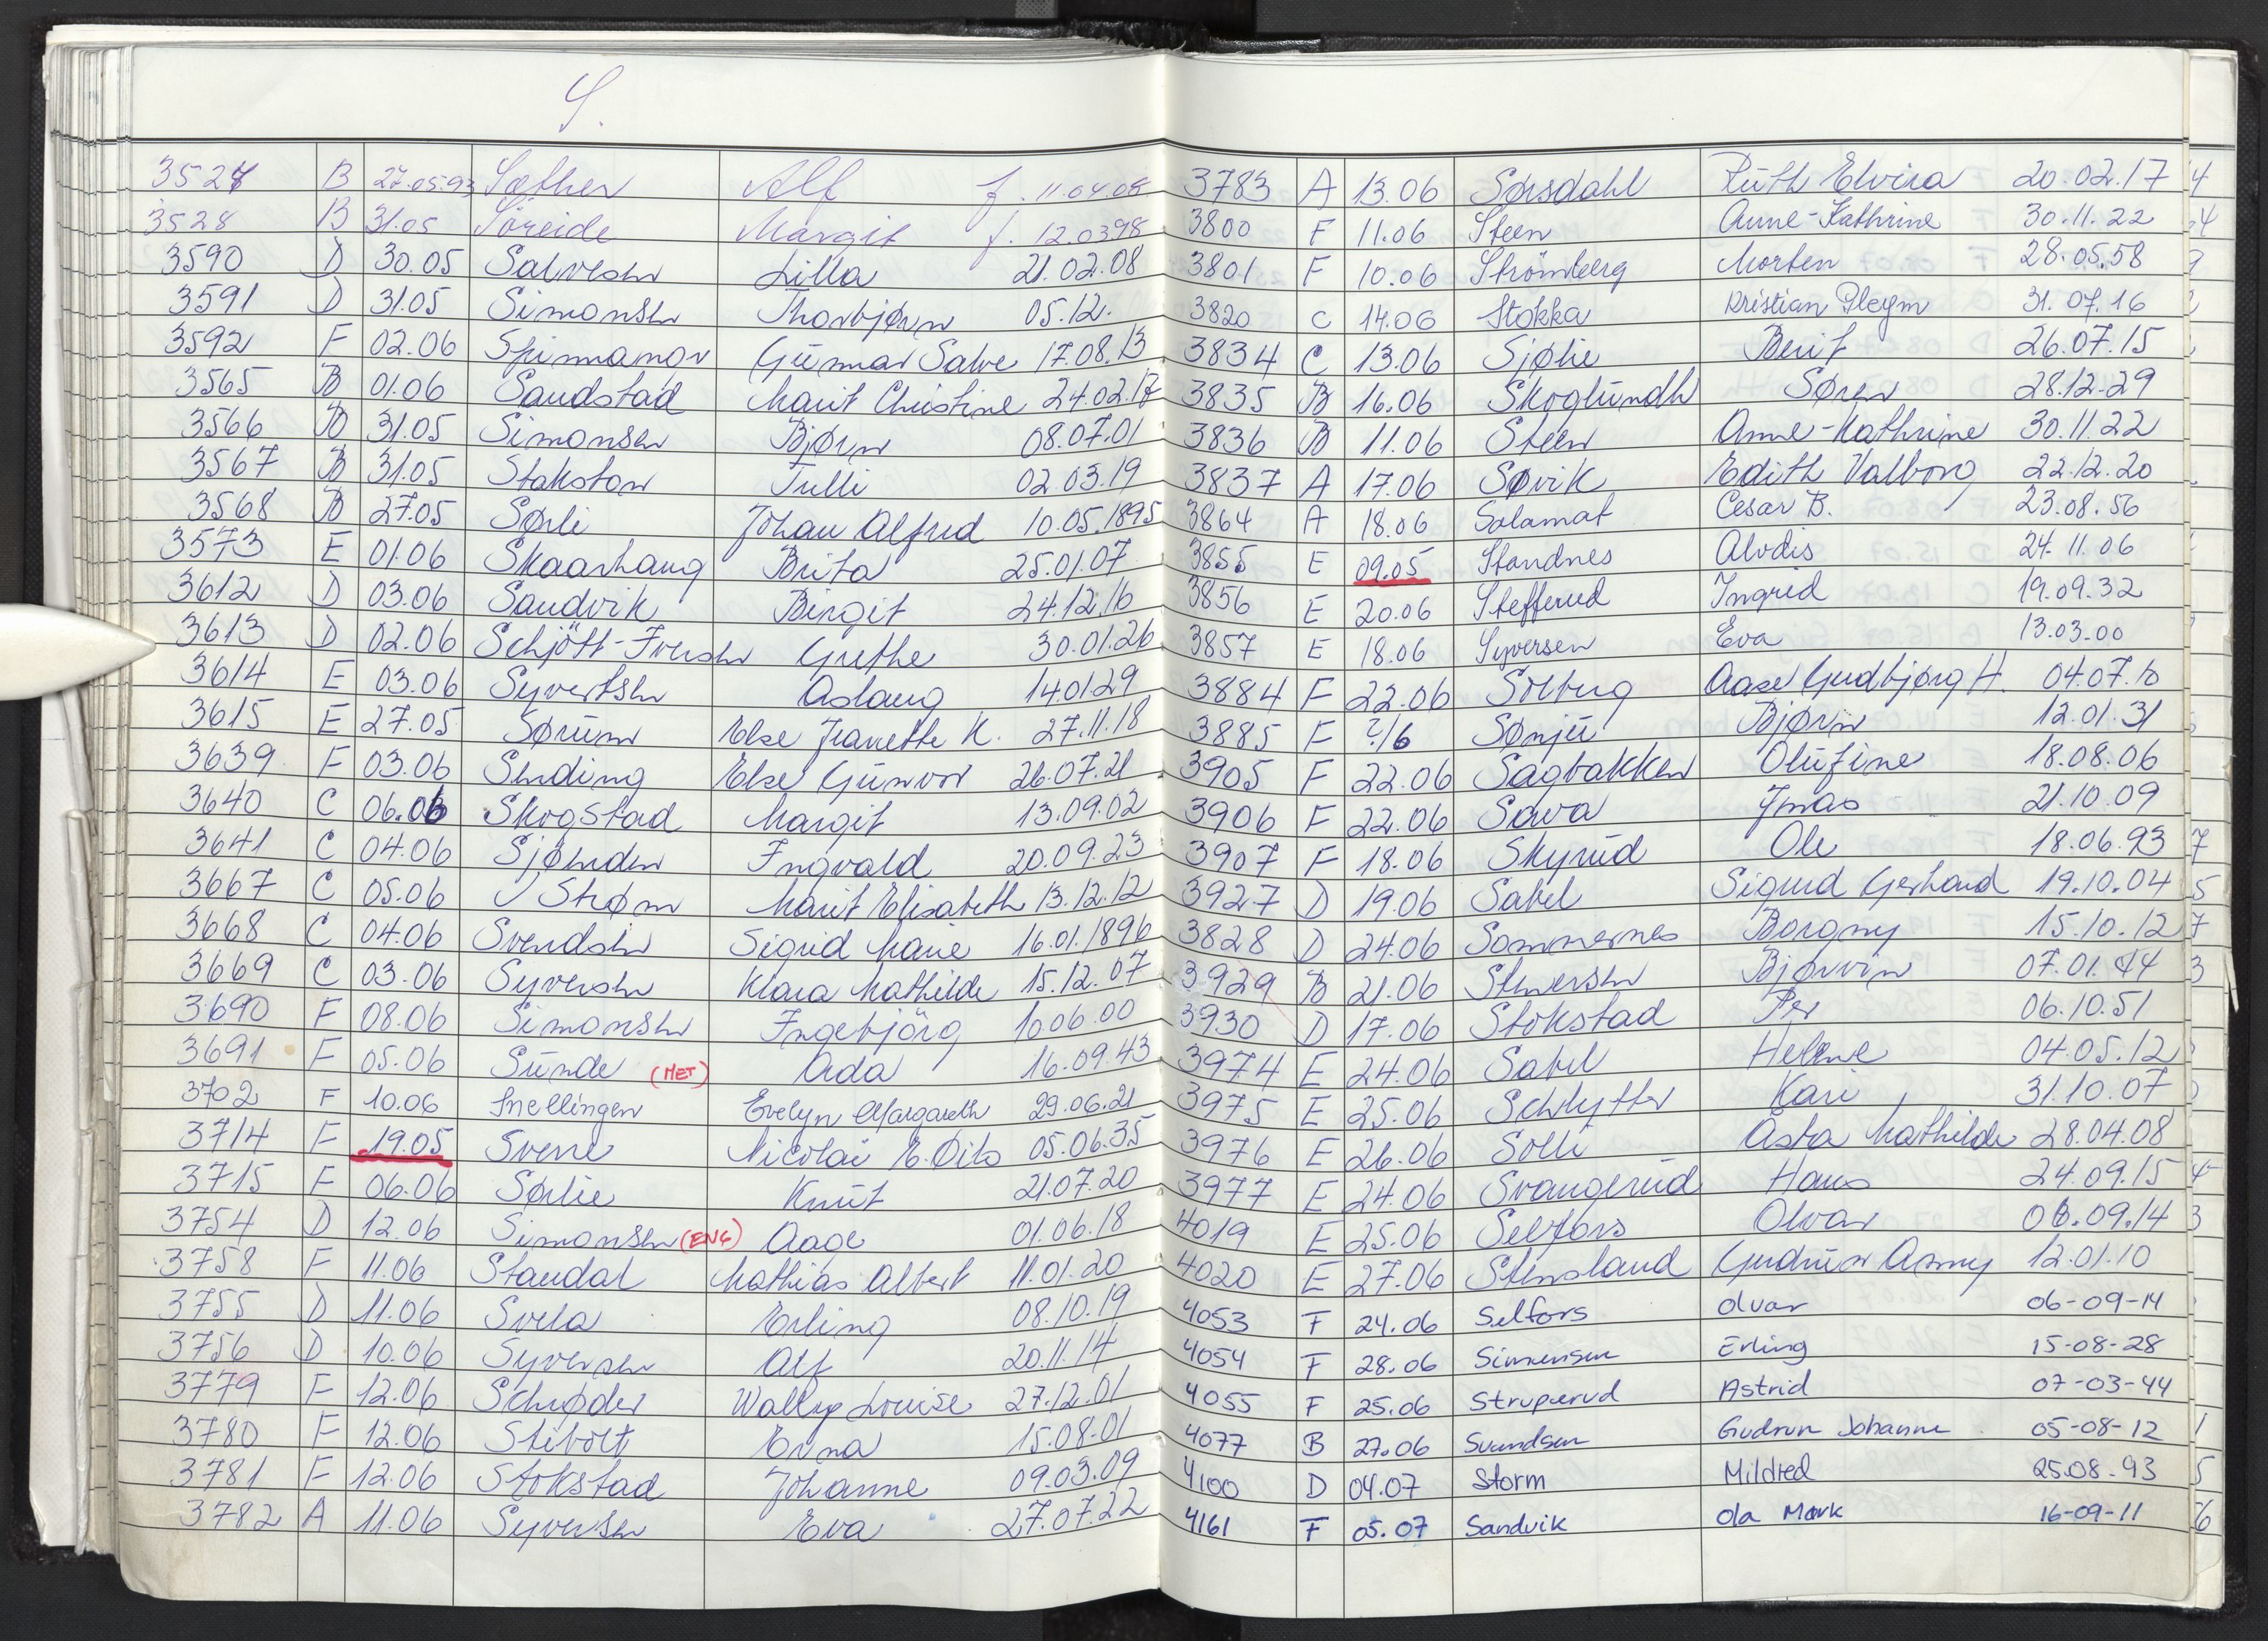 S.
3527 B 27.05.93 Sæther Alf f. 11.04.08
3528 B 31.05 Söreide Margit f. 12.0398
3590 D 30.05 Salvesen Lilla 21.02.08
3591 D 31.05 Simonsen Thorbjørn 05.12.
3592 F 02.06 Spinnangr Gunnar Salve 17.08.13
3565 B 01.06 Sandstad Marit Christine 24.02.17
3566 B 31.05 Simonsen Bjørn 08.07.01
3567 B 31.05 Stakston Tulli 02.03.19
3568 B 27.05 Sørli Johan Alfred 10.05.1895
3573 E 01.06 Skaarhaug Brita 25.01.07
3612 D 03.06 Sandvik Birgit 24.12.16
3613 D 02.06 Schjött-Iversen Grethe 30.01.26
3614 E 03.06 Syvertsen Aslaug 14.01.29
3615 E 27.05 Sørum Else Jeanette K. 27.11.18
3639 F 03.06 Sinding Else Gunvor 26.07.21
3640 C 06.06 Skogstad Margit 13.09.02
3641 C 04.06 Sjønden Ingvald 20.09.23
3667 C 05.06 Strøm Marit Elisabeth 13.12.12
3668 C 04.06 Svendsen Sigrid Marie 16.01.1896
3669 C 03.06 Syversen Klara Mathilde 15.12.07
3690 F 08.06 Simonsen Ingebjörg 10.06.00
3691 F 05.06 Sunde (MET) Ada 16.09.43
3702 F 10.06 Snellingen Evelyn Margareth 29.06.21
3714 F 19.05 Svene Nicolai E. Øilo 05.06.35
3715 F 06.06 Sørlie Knut 21.07.20
3754 D 12.06 Simonsen (ENG) Aage 01.06.18
3758 F 11.06 Standal Mathias Albert 11.01.20
3755 D 11.06 Svela Erling 08.10.19
3756 D 10.06 Syversen Alf 20.11.14
3779 F 12.06 Schrøder Wally Louise 27.12.01
3780 F 12.06 Stibolt Erna 15.08.01
3781 F 12.06 Stokstad Johanne 09.03.09
3782 A 11.06 Syversen Eva 27.07.22
3783 A 13.06 Sørsdahl Ruth Elvira 20.02.17
3800 F 11.06 Steen Anne-Kathrine 30.11.22
3801 F 10.06 Strömberg Morten 28.05.58
3820 C 14.06 Stokka Kristian Pleym 31.07.16
3834 C 13.06 Sjølie Berit 26.07.15
3835 B 16.06 Skoglundh Søren 28.12-29
3836 B 11.06 Steen Anne-Kathrine 30.11.22
3837 A 17.06 Søvik Edith Valborg 22.12.20
3864 A 18.06 Salamat Cesar B. 23.08.56
3855 E 09.05 Standnes Alvdis 24.11.06
3856 E 20.06 Stefferud Ingrid 19.09.32
3857 E 18.06 Syversen Eva 13.03.00
3884 F 22.06 Solberg Aase Gudbjørg H. 04.07.10
3885 F ?/6 Sønju Bjørn 12.01.31
3905 F 22.06 Sagbakken Olufine 18.08.06
3906 F 22.06 Sava Jmas 21.10.09
3907 F 18.06 Skyrud Ole 18.06.93
3927 D 19.06 Sabel Sigurd Gerhard 19.10.04
3828 D 24.06 Sommernes Borgny 15.10.12
3929 B 21.06 Stenersen Bjørvin 07.01.44
3930 D 17.06 Stokstad Per 06.10.51
3974 E 24.06 Sabel Helene 04.05.12
3975 E 25.06 Schlytter Kari 31.10.07
3976 E 26.06 Solli Asta Mathilde 28.04.08
3977 E 24.06 Svangerud Hans 24.09.15
4019 E 25.06 Selfors Olvar 06.09.14
4020 E 27.06 Stensland Gudrun Anny 12.01.10
4053 F 24.06 Selfors Olvar 06-09-14
4054 F 28.06 Simensen Erling 15-08-28
4055 F 25.06 Struperud Astrid 07-03-44
4077 B 27.06 Svendsen Gudrun Johanne 05-08-12
4100 D 04.07 Storm Mildred 25.08.93
4161 F 05.07 Sandvik Ola Mork 16-09-11